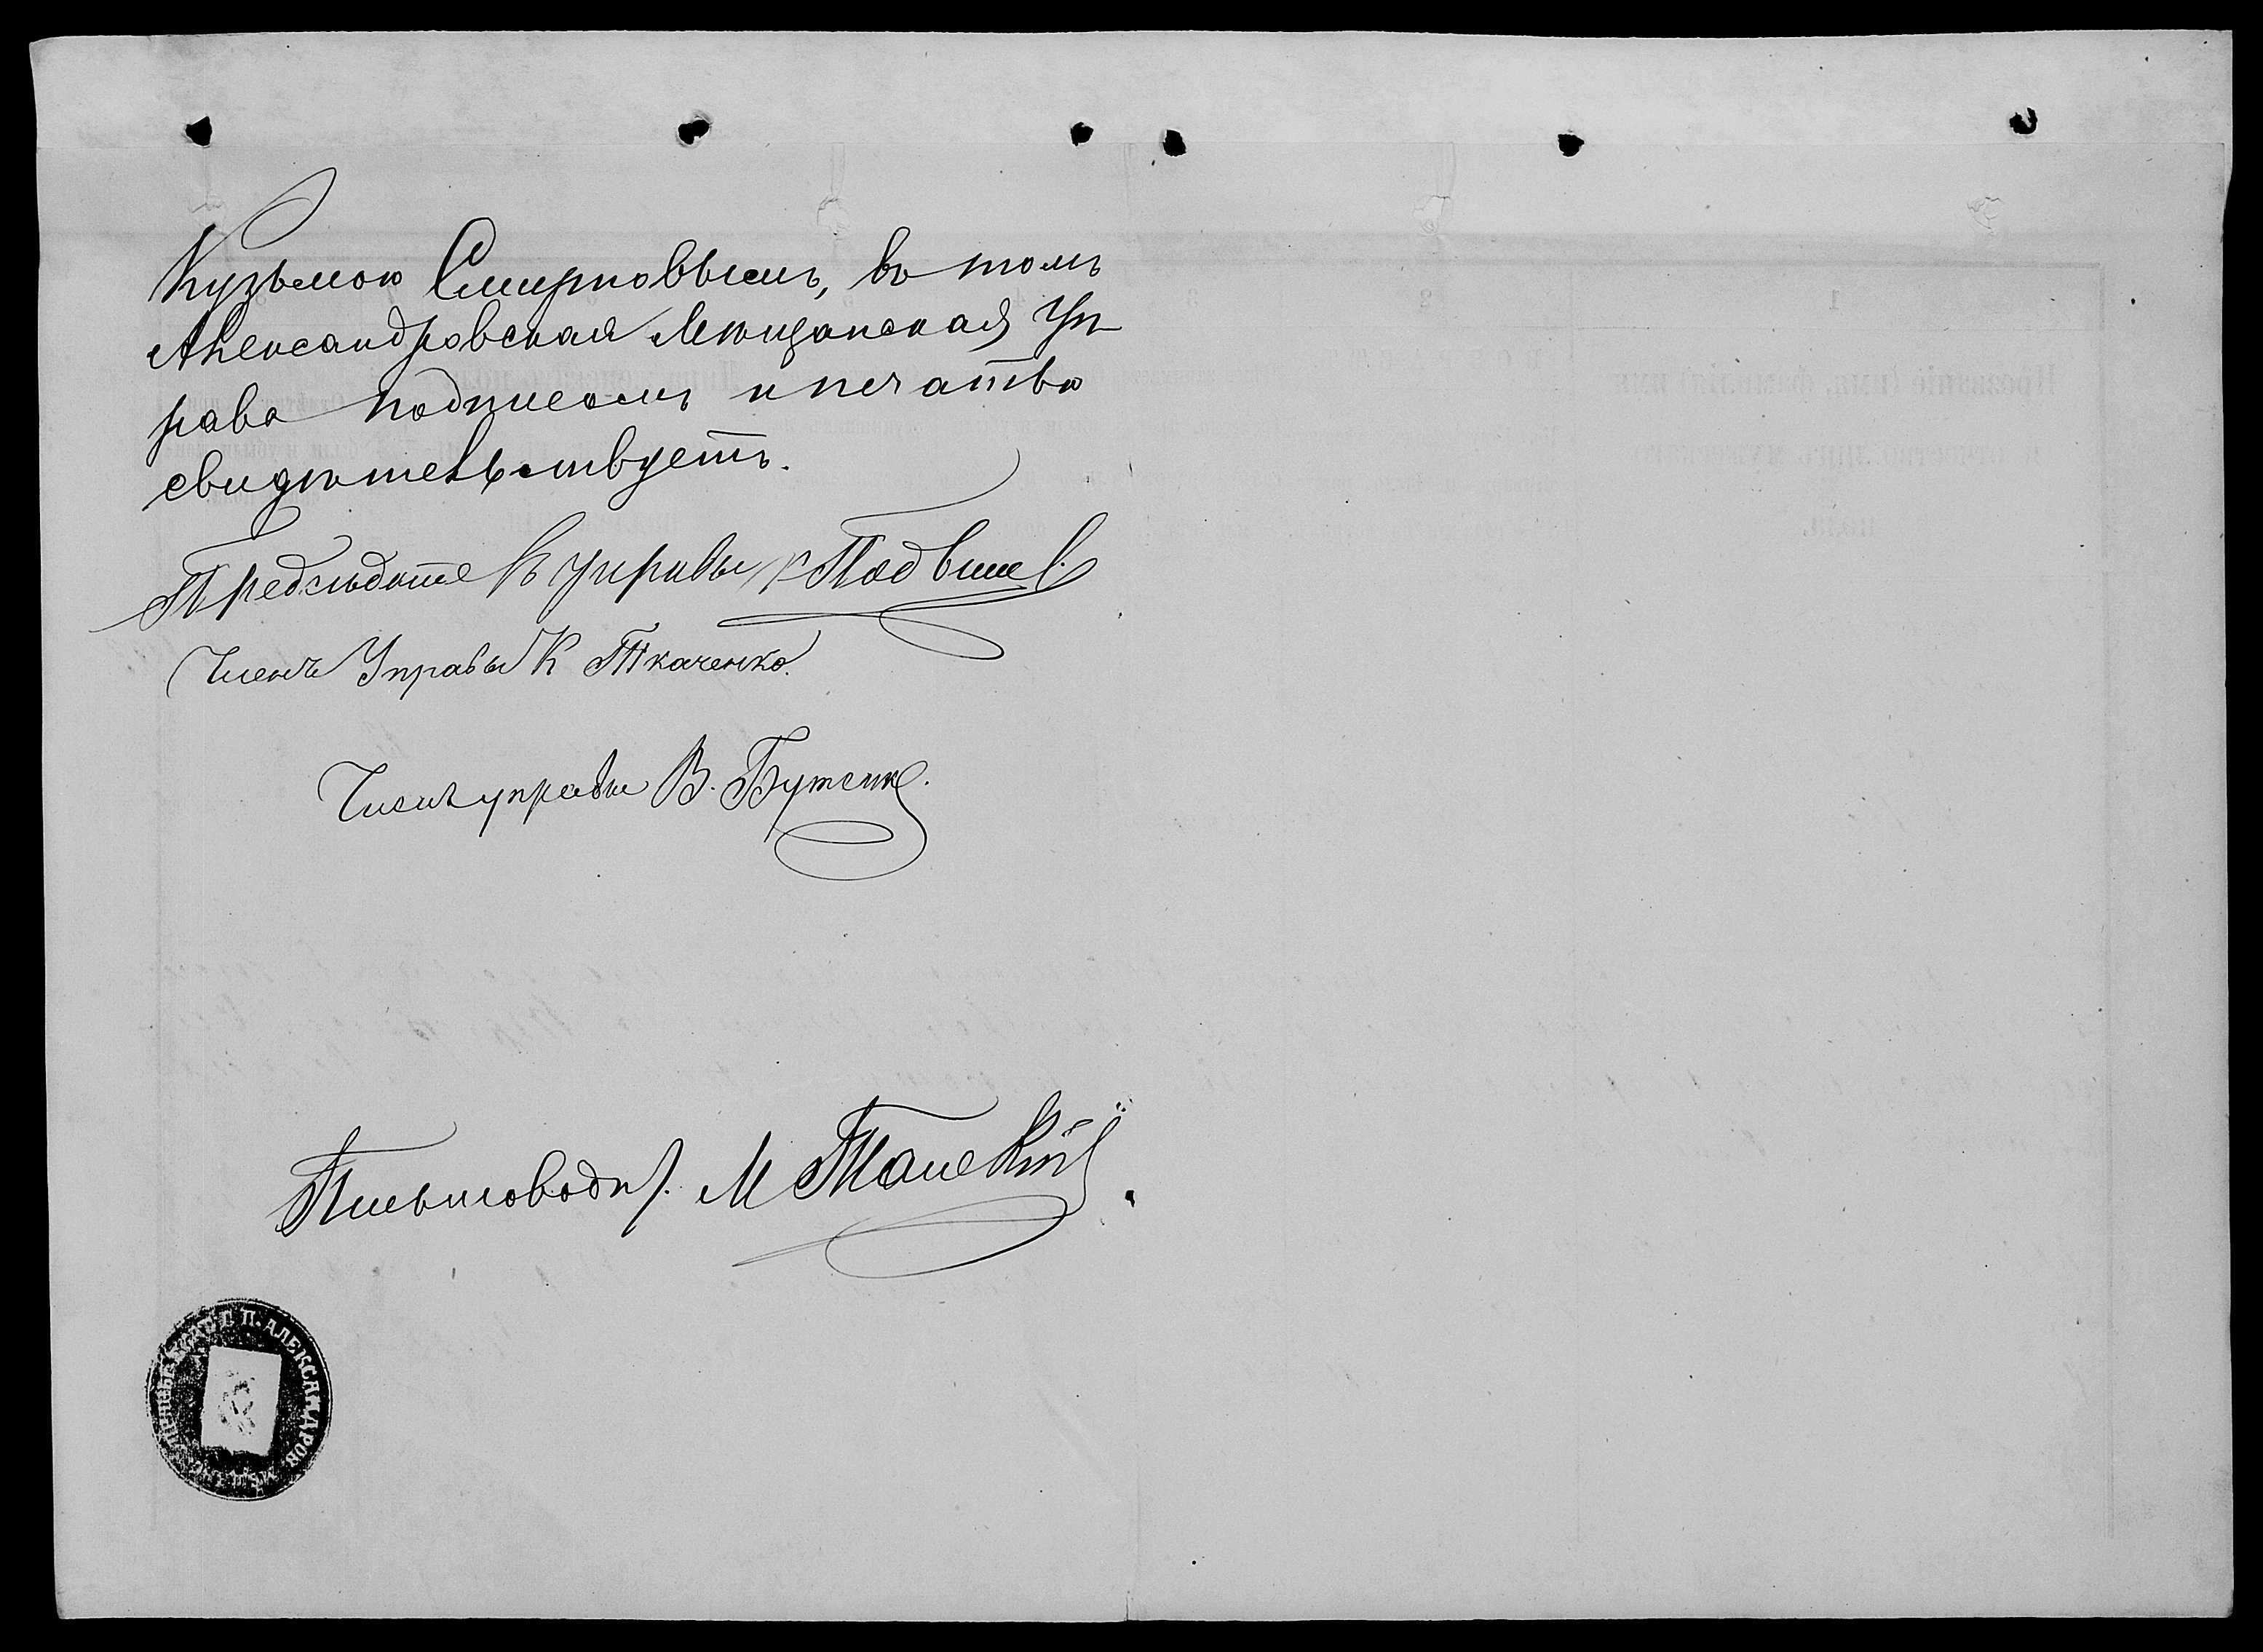 Кузьмою Смирновымъ, въ томъ
Александровская Мѣщанская Уп-
рава подписомъ и печатью
свидѣтельствуетъ.
Предсѣдатель Управы
Членъ Управы К Ткаченко.
Членъ управы В. Бутенко.
Письмоводи. М
П. АЛЕКСАНДРОВ.